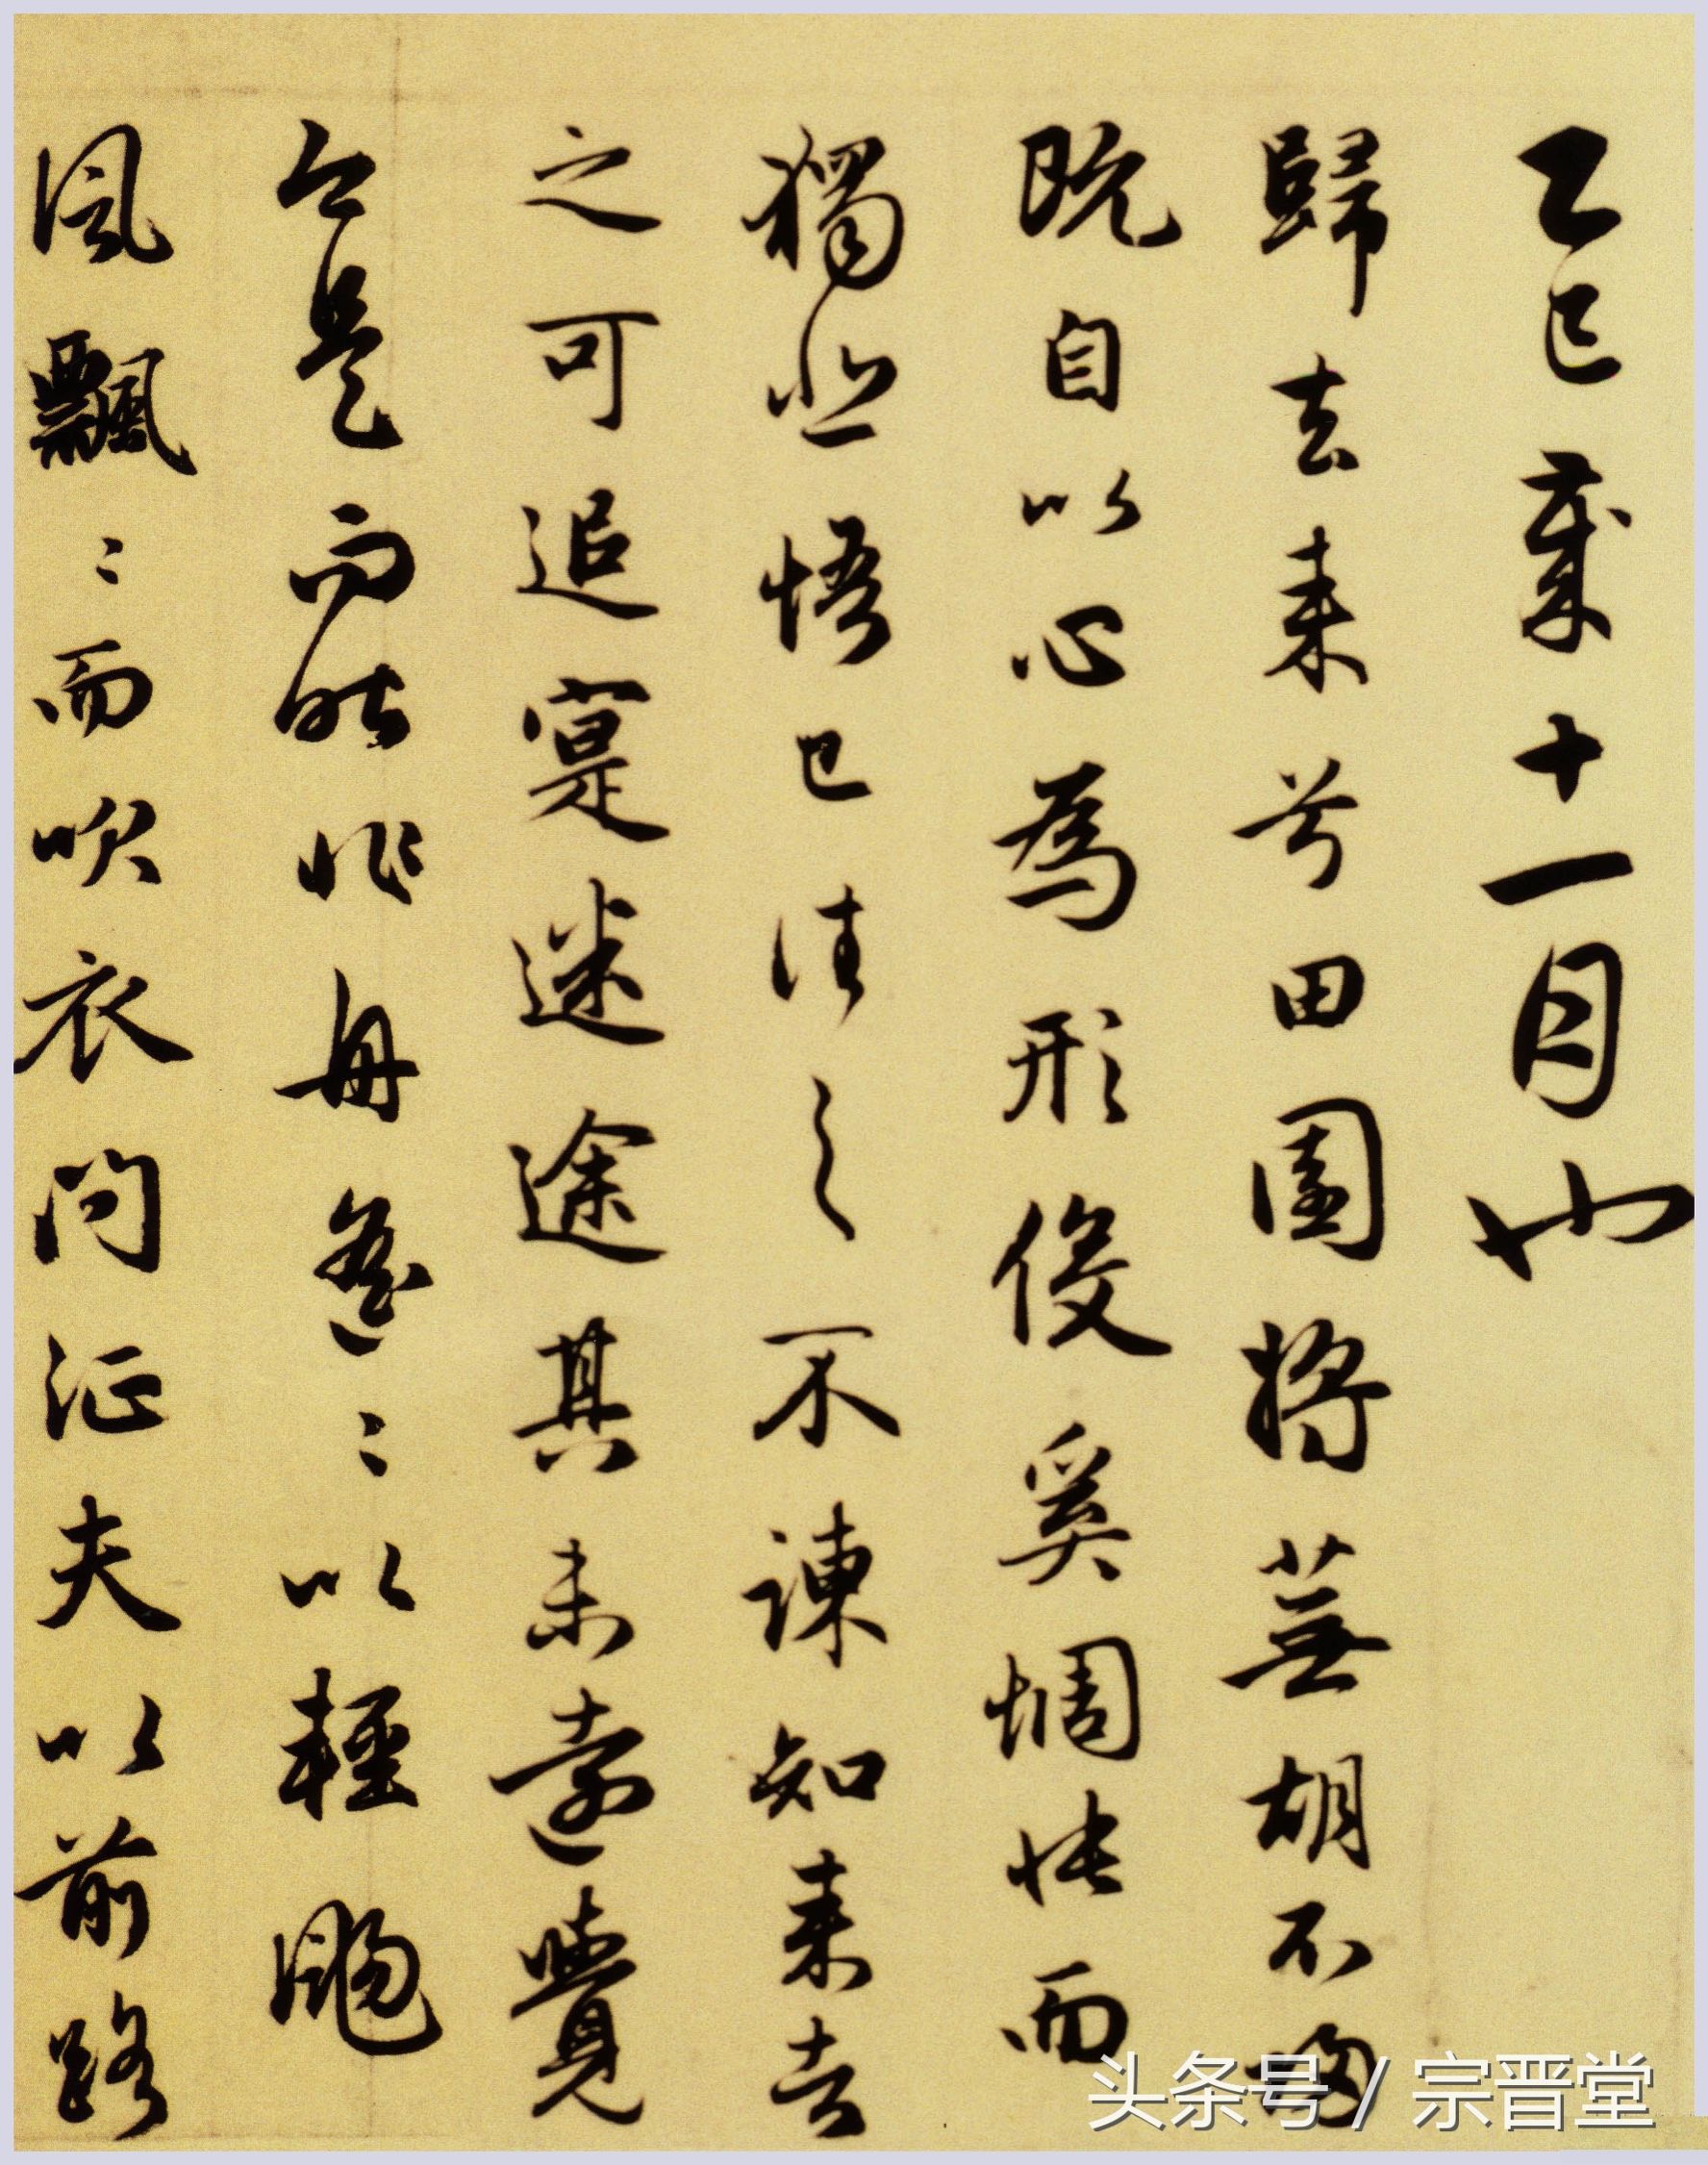 乙巳歲十一月也
歸去来兮田園將蕪胡不歸
既自以心為形役奚惆悵而
獨悲悟已往之不諫知来者
之可追寔迷途其未遠覺
今是而昨非舟遙〻以輕颺
風飄〻而吹衣問征夫以前路
头条号 / 宗晋堂